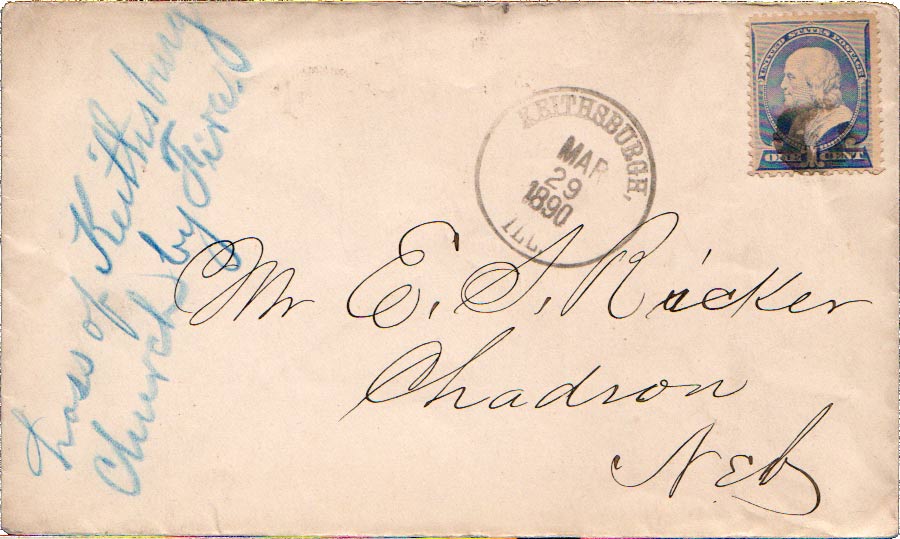 Loss of Keithsburg
Church by Fire.
KEITHSBURGH,
MAR
29
1890
ILL.
UNITED STATES POSTAGE
ONE CENT
Mr E. S. Ricker
Chadron
Neb